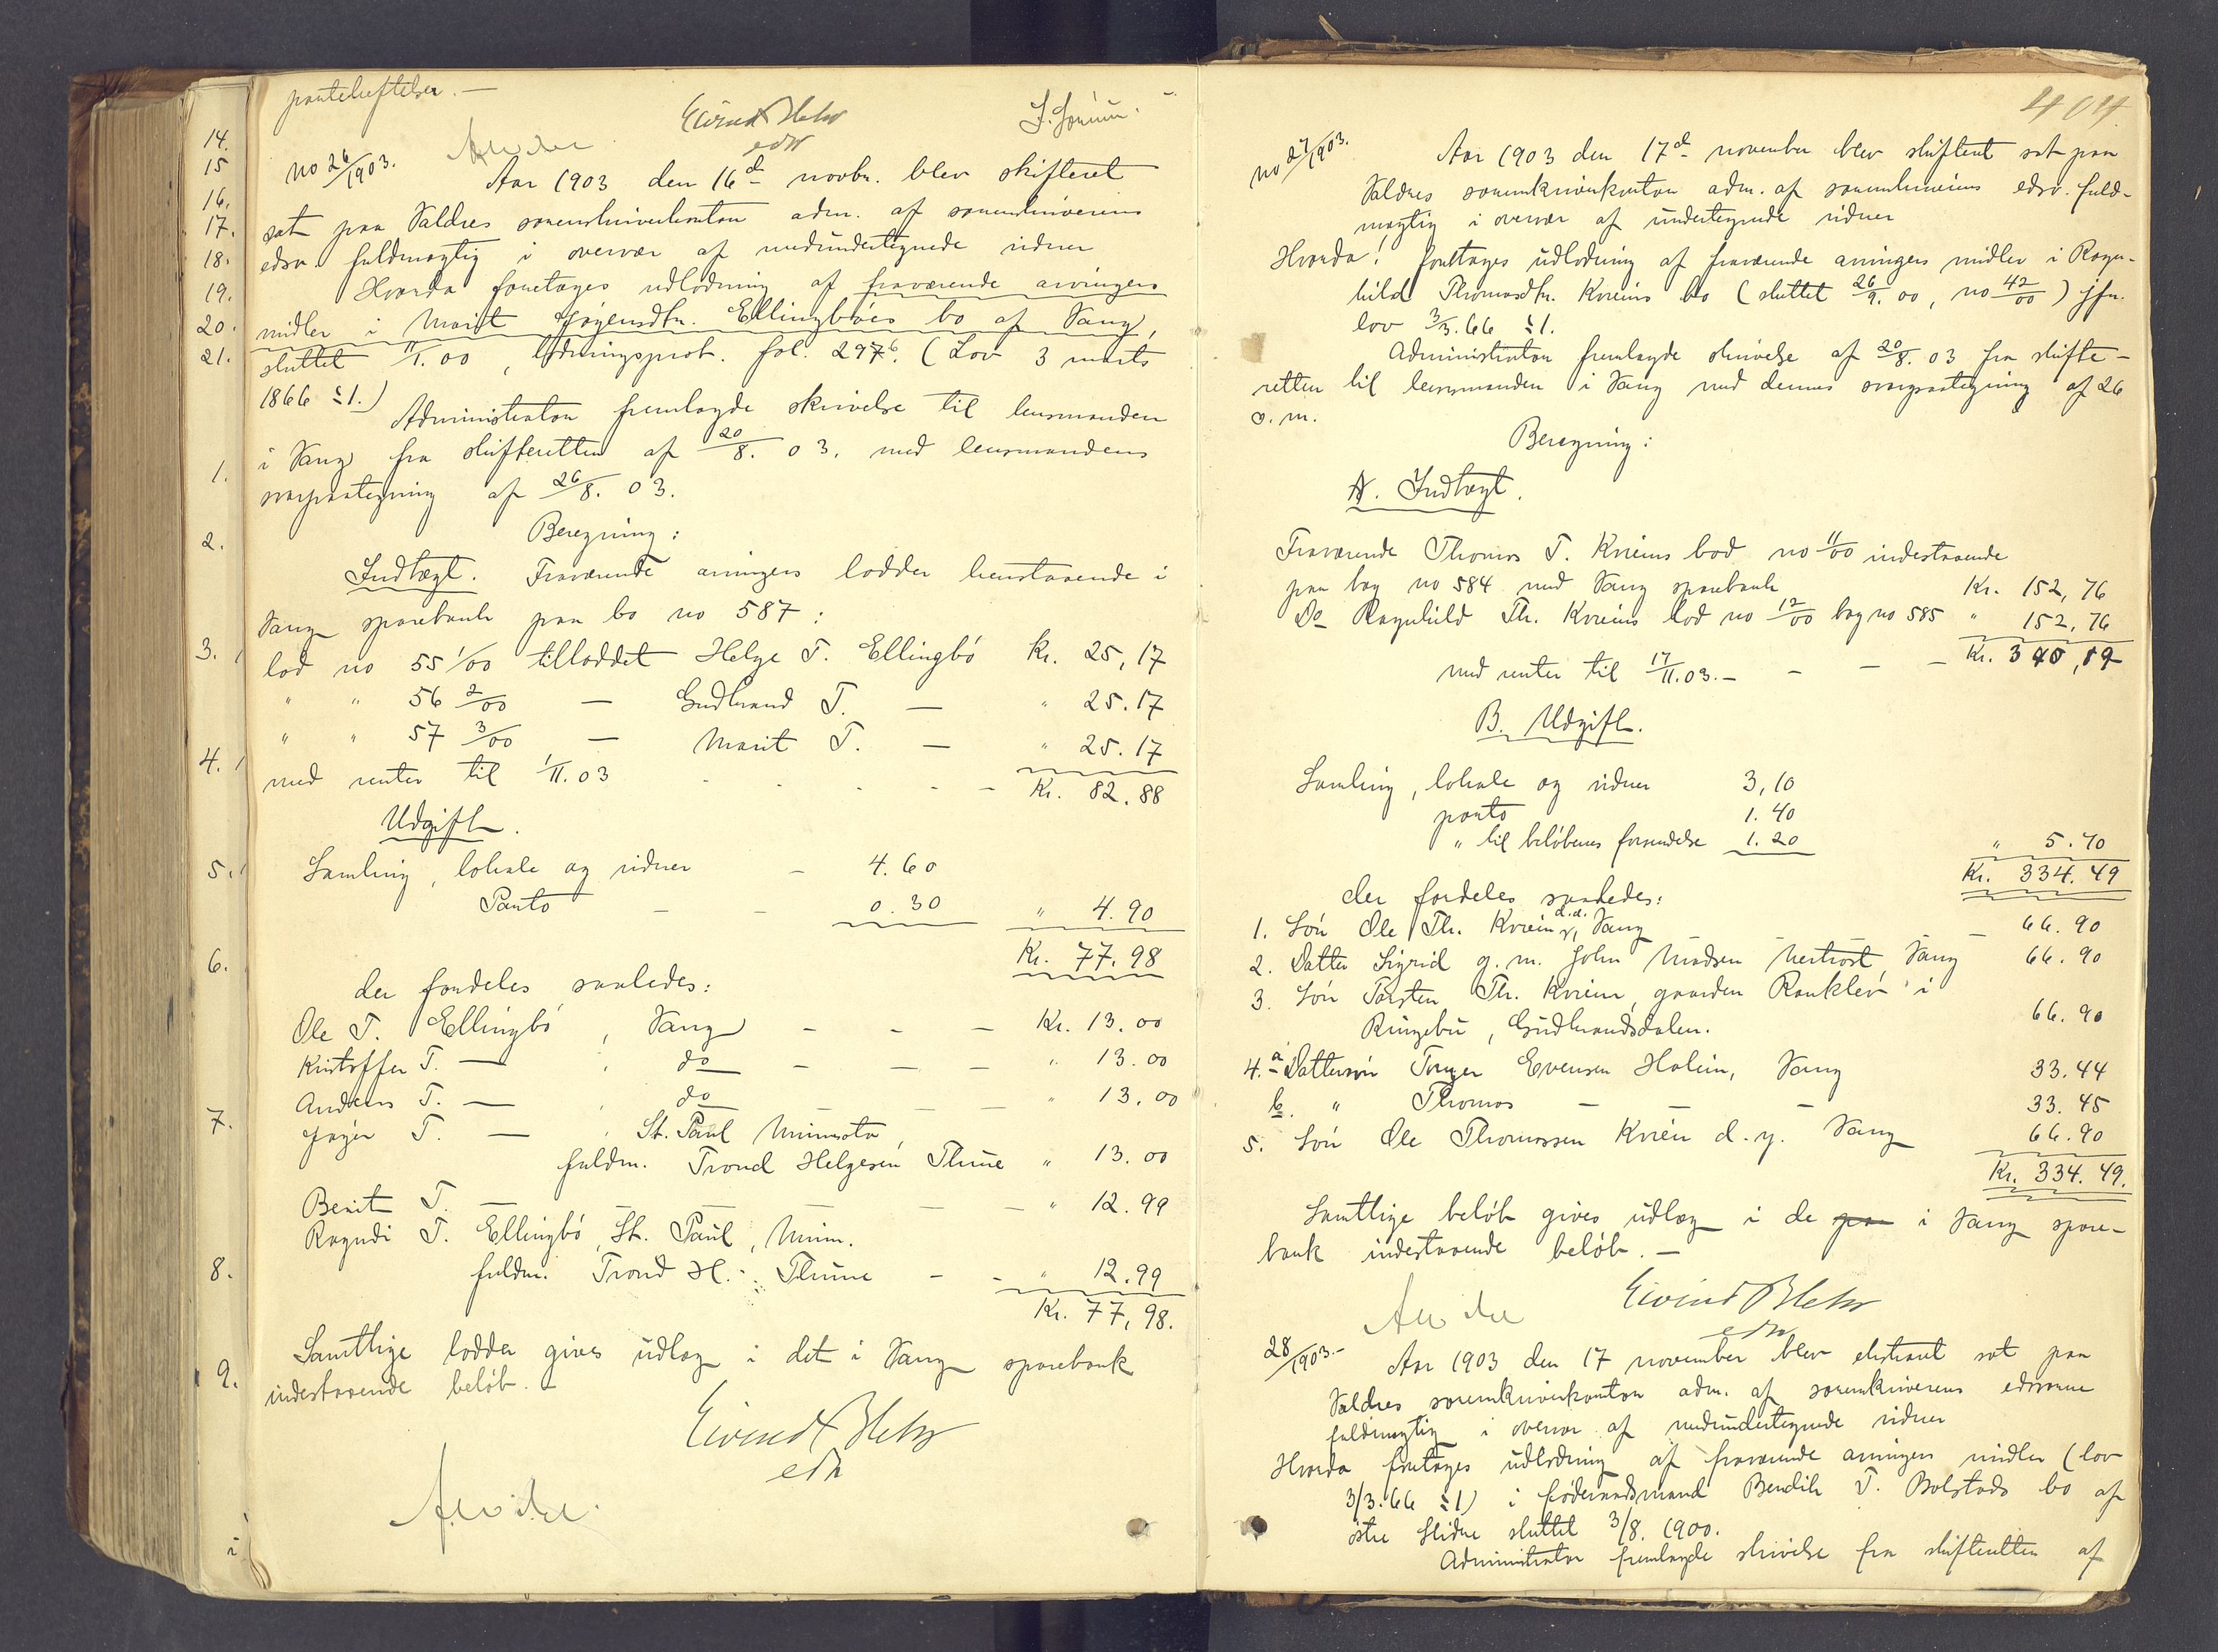 panteheftelser. —
Eivind Blehr
edsv
no 26/1903.
Aar 1903 den 16d novbr. blev skifteret
sat paa Valdres sorenskriverkontor adm. af sorenskriverens
edsv. fuldmægtig i overvær af medundertegnede vidner
Hvorda foretoges udlodning af fraværende arvingers
midler i Marit Jøgensdtr. Ellingbøes bo af Vang,
sluttet 11/1. 00, lodningsprot. fol. 297b. (Lov 3 marts
1866 § 1.)
Administrator fremlagde skrivelse til lensmanden
i Vang fra skifteretten af 20/8. 03. med lensmandens
svarpaategning af 26/8. 03.
Beregning:
Indtægt. Fraværende arvingers lodder henstaaende i
Vang sparebank paa bo no 587:
lod no 55 1/00 tilloddet Helge T. Ellingbø Kr. 25,17
" " 56 2/00 — Gudbrand T. — " 25.17
" " 57 3/00 — Marit T. — " 25.17
med renter til 1/11. 03 - - - - Kr. 82.88
Udgift.
Samling, lokale og vidner - 4.60
Porto - - 0.30 " 4.90
Kr. 77.98
der fordeles saaledes:
Ole T. Ellingbø, Vang - - - Kr. 13.00
Kristoffer T. — , do - - - " 13.00
Anders T. — , do - - - " 13.00
Jøger T. — , St. Paul Minnesota,
fuldm. Trond Helgesen Thune " 13.00
Berit T. — — — — - - " 12.99
Ragndi T. Ellingbø, St. Paul, Minn.
fuldm. Trond H. Thune - - " 12.99
Kr. 77,98.
Samtlige lodder gives udlæg i det i Vang sparebank
indestaaende beløb. —
Eivind Blehr
edsv
14.
15
16.
17.
18.
19.
20.
21.
1.
2.
3.
4.
5.
6.
7.
8.
9.
404
no 27/1903.
Aar 1903 den 17d november blev skifteret sat paa
Valdres sorenskriverkontor adm. af sorenskriverens edsv. fuld-
mægtig i overvær af undertegnede vidner
Hvorda: foretoges udlodning af fraværende arvingers midler i Ragn-
hild Thomasdtr. Kviens bo (sluttet 26/9. 00, no 42/00) jfr.
lov 3/3. 66 § 1.
Administrator fremlagde skrivelse af 20/8. 03 fra skifte-
retten til lensmanden i Vang med dennes svarpaategning af 26
s. m.
Beregning:
A. Indtægt.
Fraværende Thomas T. Kviens lod no 11/00 indestaaende
paa bog no 584 med Vang sparebank Kr. 152,76
Do Ragnhild Th. Kviens lod no 12/00 bog no 585 " 152,76
med renter til 17/11. 03. — - - - Kr. 340,19
B. Udgift.
Samling, lokale og vidner 3,10
porto 1.40
" til beløbenes forsendelse 1.20 " 5.70
Kr. 334.49
der fordeles saaledes:
1. Søn Ole Th. Kvien d.æ., Vang - - - 66.90
2. Datter Sigrid g. m. John Madsen Nertrost, Vang 66.90
3. Søn Torsten Th. Kvien, gaarden Rankleiv i
Ringebu, Gudbrandsdalen. 66.90
4. a Dattersøn Torger Evensen Holein, Vang 33.44
b. " Thomas — — — 33.45
5. Søn Ole Thomassen Kvien d. y. Vang 66.90
Kr. 334.49.
Samtlige beløb gives udlæg i de paa i Vang spare-
bank indestaaende beløb. —
Eivind Blehr
edsv
28/1903. —
Aar 1903 den 17 november blev ekstraret sat paa
Valdres sorenskriverkontor adm. af sorenskriverens edsvorne
fuldmægtig i overvær af medundertegnede vidner
Hvorda foretoges udlodning af fraværende arvingers midler (lov
3/3. 66 § 1) i føderaadsmand Bendik T. Bolstads bo af
østre Slidre sluttet 3/8. 1900.
Administrator fremlagde skrivelse fra skifteretten af